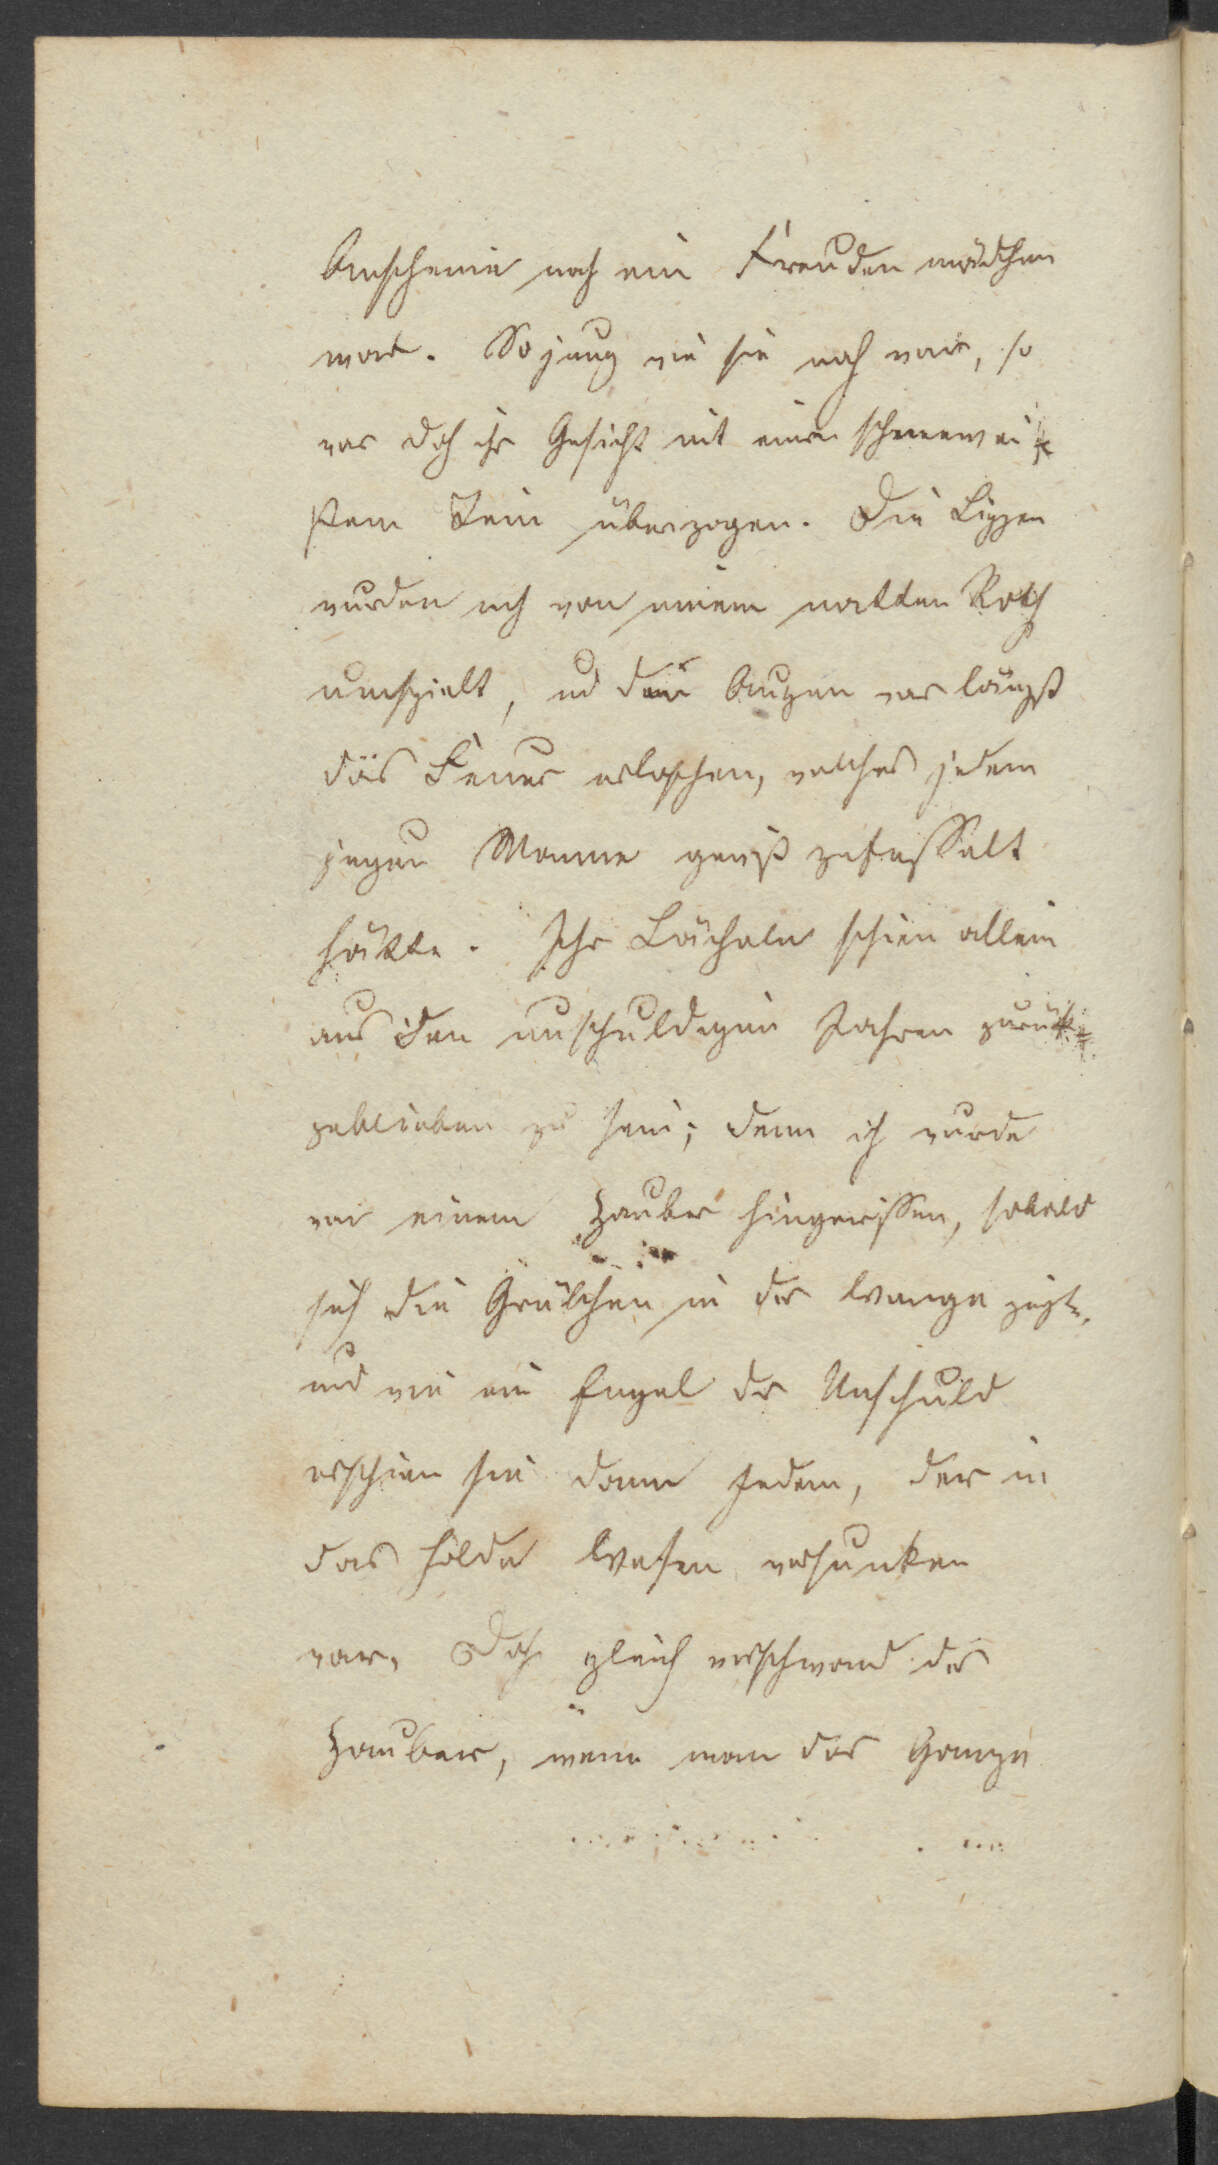 Anschenie nach ein Freudenmädchen
war. So jung wie sie noch war, so
war doch ihr Gesicht mit einem schneewei-
ßem Tein überzogen. Die Lippen
wurden noch von einem matten Roth
umspielt, und den Augen war längst
das Feuer erloschen, welches jedem
jungen Manne gewiß gefesselt
hätte. Ihr Lächeln schien allein
aus den unschuldigen Jahren zurück-
geblieben zu sein; denn ich wurde
von einem Zauber hingerissen, sobald
sich die Grübchen in der Wange zeigte,
und wie ein Engel der Unschuld
erschien sie dann Jedem, der in
das holde Wesen versunken
war. Doch gleich verschwand der
Zauber, wenn man das Ganze